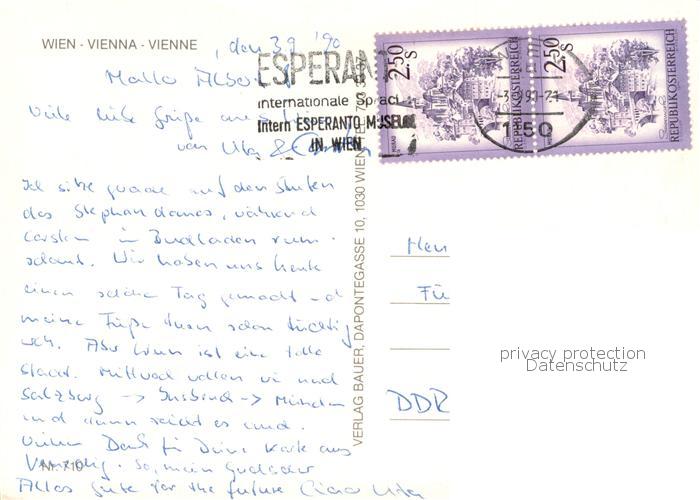 WIEN - VIENNA - VIENNE
, den 3.9.'90
Hallo
Viele liebe Grüße aus
von Uta &
ESPERAN
Internationale Sprach
Intern ESPERANTO MUSEUM
IN WIEN
2.50 S
REPUBLIK ÖSTERREICH
2.50 S
REPUBLIK ÖSTERREICH
1150
Ich sitze gerade auf den Stufen
des Stephandomes, während
Carsten im Buchladen rum-
schaut. Wir haben uns heute
einen schönen Tag gemacht und
meine Füße tun schon tüchtig
weh. Aber Wien ist eine tolle
Stadt. Mittwoch wollen wir nach
Salzburg -> Innsbruck -> München
und dann reicht es und.
Vielen Dank für Deine Karte aus
Venedig. So, mein
Alles Gute for the future Ciao Uta
Nr. 710
VERLAG BAUER, DAPONTEGASSE 10, 1030 WIEN
Herr
Fü
DDR
privacy protection
Datenschutz